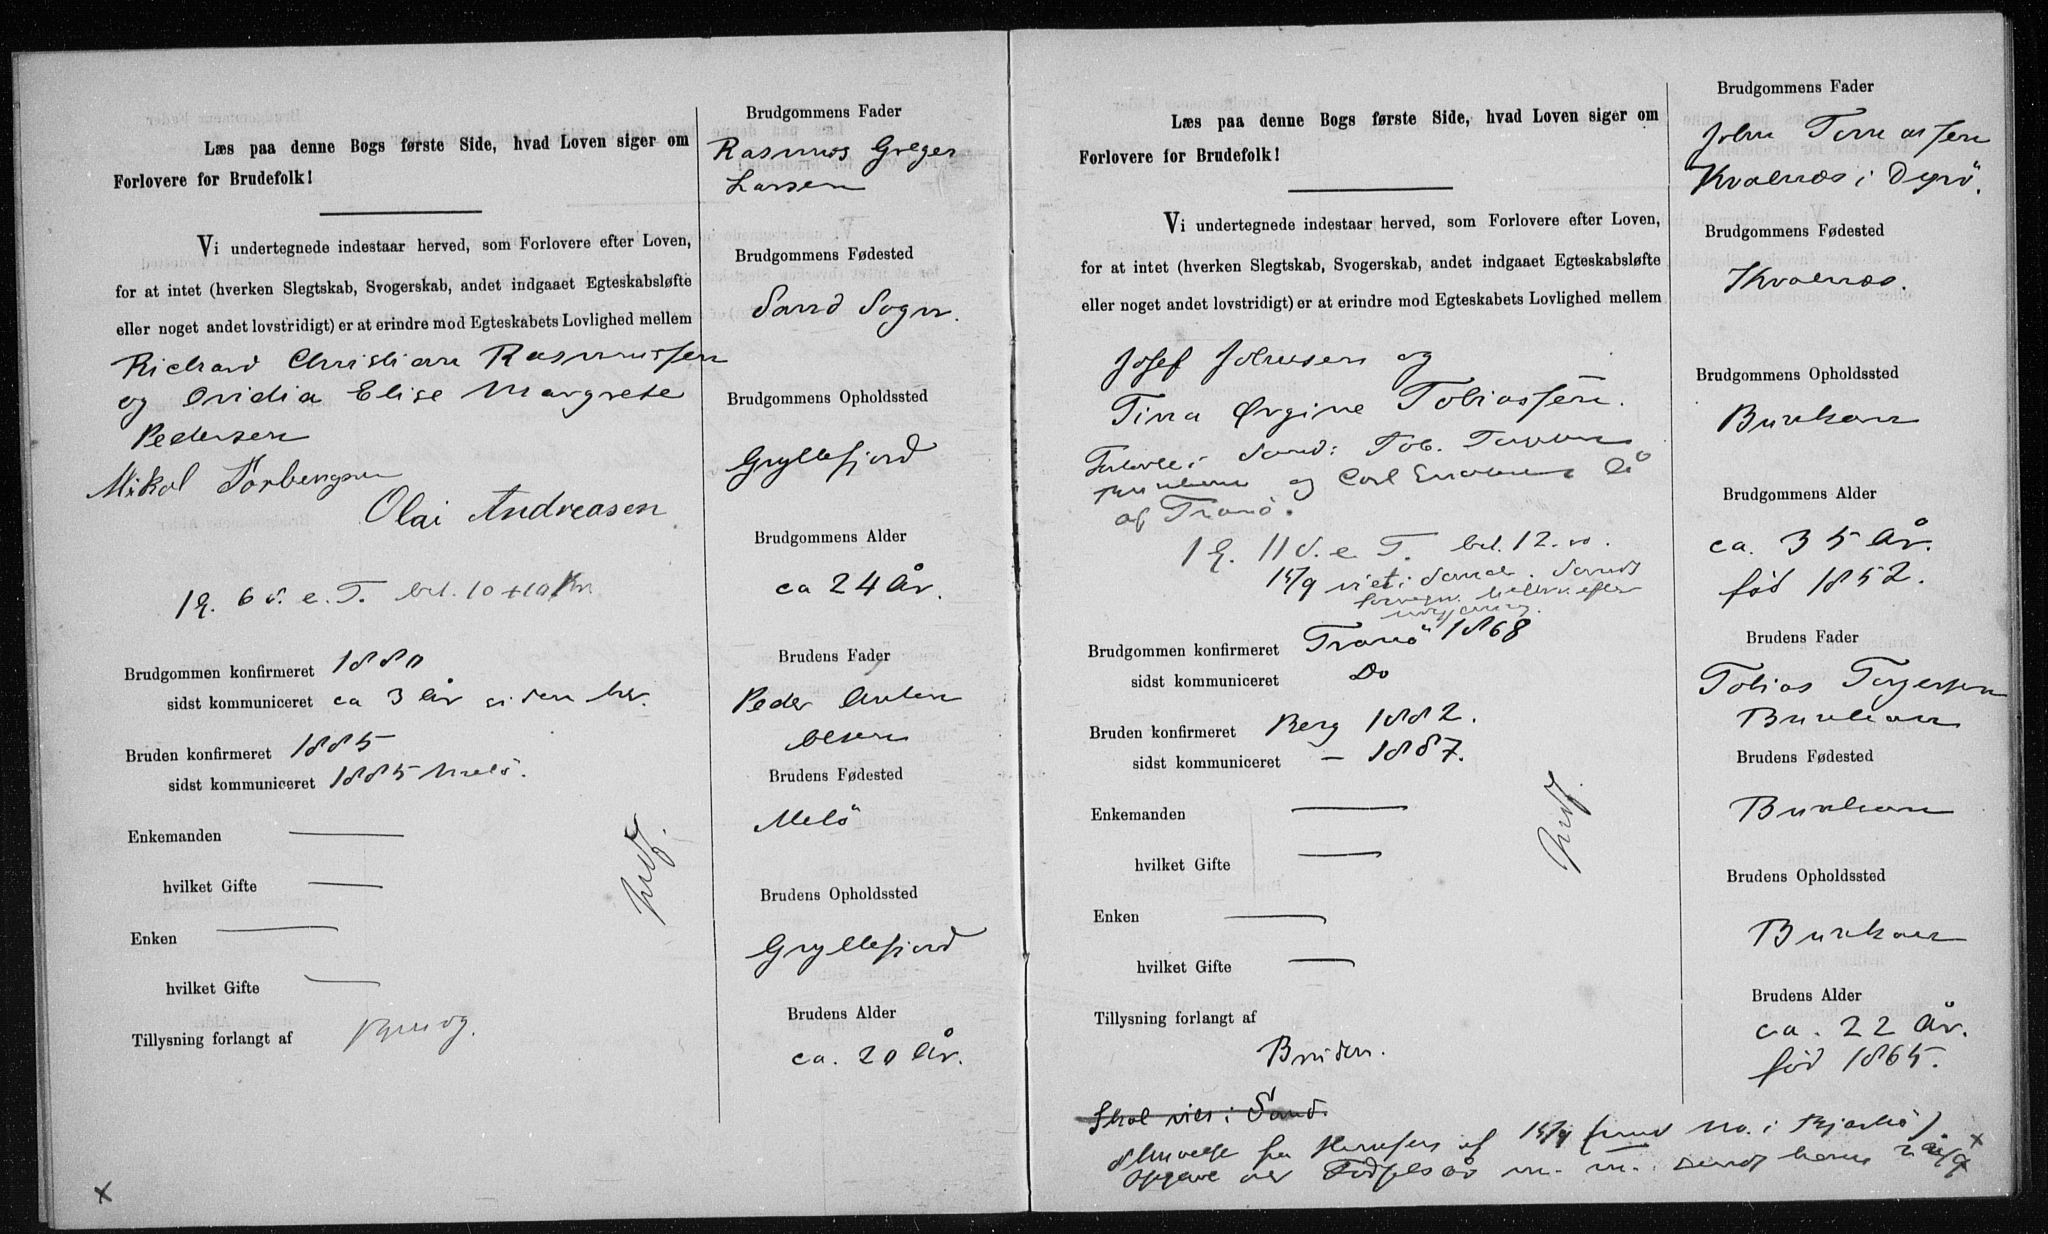 Læs paa denne Bogs første Side, hvad Loven siger om
Forlovere for Brudefolk!
Vi undertegnede indestaar herved, som Forlovere efter Loven,
for at intet (hverken Slegtskab, Svogerskab, andet indgaaet Egteskabsløfte
eller noget andet lovstridigt) er at erindre mod Egteskabets Lovlighed mellem
Richard Christian Rasmussen
og Ovidia Elise Margrete
Pedersen
Mikal Torbergsen
Olai Andreasen
19. 6 S. e. T. bet. 10 + 10 Kr
Brudgommen konfirmeret 1880
sidst kommuniceret ca 3 År siden her.
Bruden konfirmeret 1885
sidst kommuniceret 1885 Melö.
Enkemanden
hvilket Gifte
Enken
hvilket Gifte
Tillysning forlangt af
Brudgommens Fader
Rasmus Greger
Larsen
Brudgommens Fødested
Sand Sogn.
Brudgommens Opholdssted
Gryllefjord
Brudgommens Alder
ca 24 År.
Brudens Fader
Peder Anton
Olsen
Brudens Fødested
Melö
Brudens Opholdssted
Gryllefjord
Brudens Alder
ca. 20 År.
x
Læs paa denne Bogs første Side, hvad Loven siger om
Forlovere for Brudefolk!
Vi undertegnede indestaar herved, som Forlovere efter Loven,
for at intet (hverken Slegtskab, Svogerskab, andet indgaaet Egteskabsløfte
eller noget andet lovstridigt) er at erindre mod Egteskabets Lovlighed mellem
Josef Johnsen og
Tina Ørgine Tobiassen.
Sand: Tob.
og Carl
af Tranö.
19. 11 S. e. T. bet. 12.
15/9 viet i Sand.
Brudgommen konfirmeret Tranö 1868
sidst kommuniceret Do
Bruden konfirmeret Berg 1882.
sidst kommuniceret – 1887.
Enkemanden
hvilket Gifte
Enken
hvilket Gifte
Tillysning forlangt af
Bruden.
Skal vies i Sand.
af 15/9 (
Opgave over Fødselsår m. m. sendt
x
Brudgommens Fader
John Tomassen
Kvalnæs i Dyrö.
Brudgommens Fødested
Kvalnæs.
Brudgommens Opholdssted
Bunkan
Brudgommens Alder
ca. 35 År.
fød 1852.
Brudens Fader
Tobias Torgersen
Bunkan
Brudens Fødested
Bunkan
Brudens Opholdssted
Bunkan
Brudens Alder
ca. 22 År.
fød 1865.